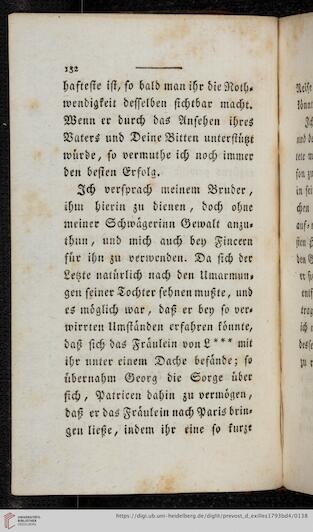 132
hafteste ist, so bald man ihr die Noth-
wendigkeit desselben sichtbar macht.
Wenn er durch das Ansehen ihres
Vaters und Deine Bitten unterstützt
würde, so vermuthe ich noch immer
den besten Erfolg.
Ich versprach meinem Bruder,
ihm hierin zu dienen, doch ohne
meiner Schwägerinn Gewalt anzu-
thun, und mich auch bey Fincern
für ihn zu verwenden. Da sich der
Letzte natürlich nach den Umarmun-
gen seiner Tochter sehnen mußte, und
es möglich war, daß er bey so ver-
wirrten Umständen erfahren könnte,
daß sich das Fräulein von L*** mit
ihr unter einem Dache befände; so
übernahm Georg die Sorge über
sich, Patricen dahin zu vermögen,
daß er das Fräulein nach Paris brin-
gen ließe, indem ihr eine so kurze
UNIVERSITÄTS-
BIBLIOTHEK
HEIDELBERG
https://digi.ub.uni-heidelberg.de/diglit/prevost_d_exiles1793bd4/0138